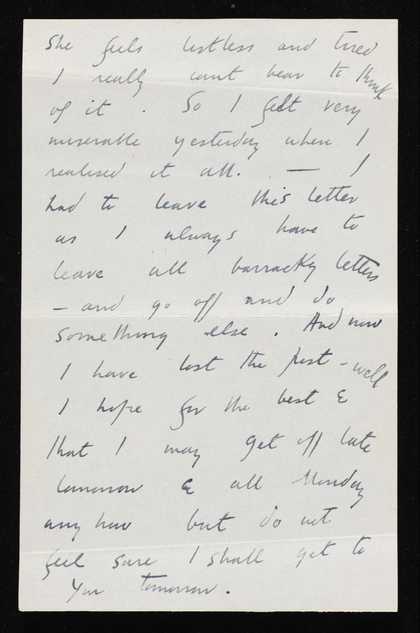 She feels listless and tired
I really cant bear to think
of it. So I felt very
miserable yesterday when I
realised it all. — I
had to leave this letter
as I always have to
leave all barracky letters
— and go off and do
something else. And now
I have lost the post - well
I hope for the best &
that I may get off late
tomorrow & all Monday
anyhow but do not
feel sure I shall get to
you tomorrow.